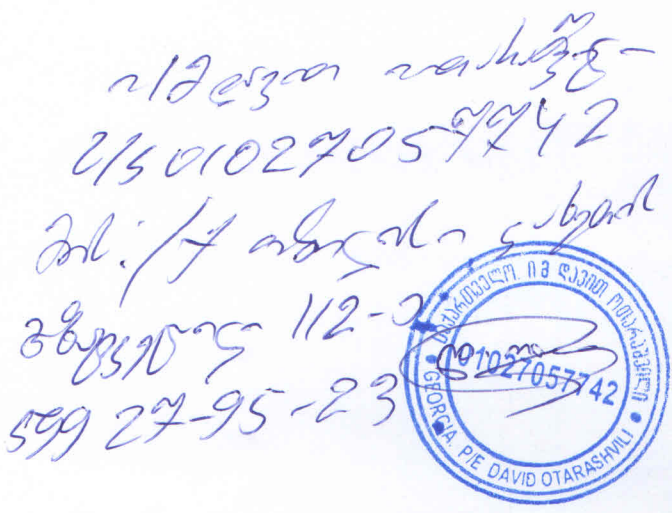 ი/მ დავით ოთარაშვილი
ს/ნ 01027057742
მის: ქ. თბილისი კახეთის
გზატკეცილი 112-ა
599 27-95-23
საქართველო. ი მ დავით ოთარაშვილი
01027057742
GEORGIA. P/E DAVID OTARASHVILI